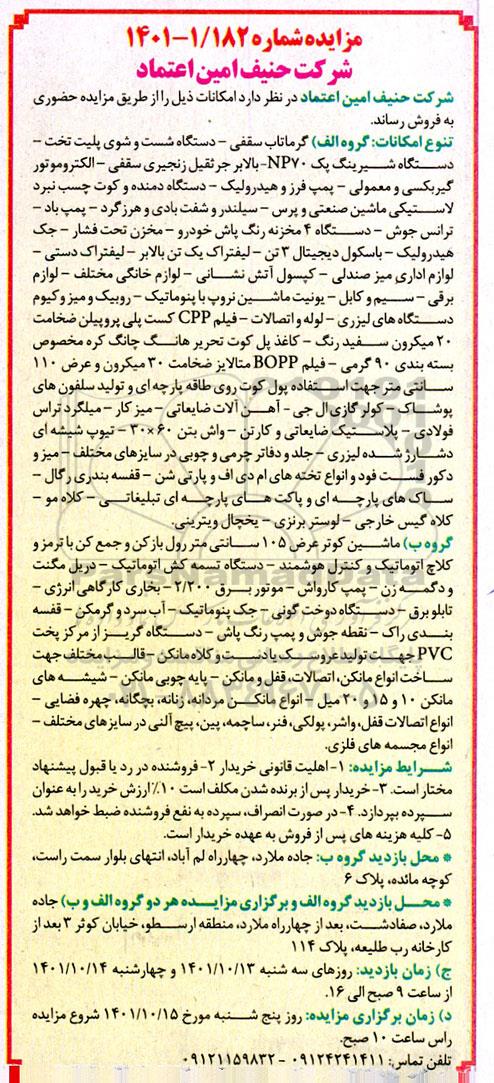 مزایده شماره ۱/۱۸۲-۱۴۰۱
شرکت حنیف امین اعتماد
شرکت حنیف امین اعتماد در نظر دارد امکانات ذیل را از طریق مزایده حضوری
به فروش رساند.
تنوع امکانات: گروه الف) گرماتاب سقفی - دستگاه شست و شوی پلیت تخت -
دستگاه شیرینگ پک NP۷۰-بالابر جرثقیل زنجیری سقفی - الکتروموتور
گیربکسی و معمولی - پمپ فرز و هیدرولیک - دستگاه دمنده و کوت چسب نبرد
لاستیکی ماشین صنعتی و پرس - سیلندر و شفت بادی و هرزگرد - پمپ باد -
ترانس جوش - دستگاه ۴ مخزنه رنگ پاش خودرو - مخزن تحت فشار - جک
هیدرولیک - باسکول دیجیتال ۳ تن - لیفتراک یک تن بالابر - لیفتراک دستی -
لوازم اداری میز صندلی - کپسول آتش نشانی - لوازم خانگی مختلف - لوازم
برقی - سیم و کابل - یونیت ماشین نروپ با پنوماتیک - روبیک و میز وکیوم
دستگاه های لیزری - لوله و اتصالات - فیلم CPP کست پلی پروپیلن ضخامت
۲۰ میکرون سفید رنگ - کاغذ پل کوت تحریر هانگ چانگ کره مخصوص
بسته بندی ۹۰ گرمی - فیلم BOPP متالایز ضخامت ۳۰ میکرون و عرض ۱۱۰
سانتی متر جهت استفاده پول کوت روی طاقه پارچه ای و تولید سلفون های
پوشاک - کولر گازی ال جی - آهن آلات ضایعاتی - میز کار - میلگرد تراس
فولادی - پلاستیک ضایعاتی و کارتن - واش بتن ۶۰×۳۰ - تیوپ شیشه ای
دشارژ شده لیزری - جلد و دفاتر چرمی و چوبی در سایزهای مختلف - میز و
دکور فست فود و انواع تخته های ام دی اف و پارتی شن - قفسه بندی رگال -
ساک های پارچه ای و پاکت های پارچه ای تبلیغاتی - کلاه مو -
کلاه گیس خارجی - لوستر برنزی - یخچال ویترینی.
گروه ب) ماشین کوتر عرض ۱۰۵ سانتی متر رول بازکن و جمع کن با ترمز و
کلاچ اتوماتیک و کنترل هوشمند - دستگاه تسمه کش اتوماتیک - دریل مگنت
و دگمه زن - پمپ کارواش - موتور برق ۲/۲۰۰ - بخاری کارگاهی انرژی -
تابلو برق - دستگاه دوخت گونی - جک پنوماتیک - آب سرد و گرمکن - قفسه
بندی راک - نقطه جوش و پمپ رنگ پاش - دستگاه گریز از مرکز پخت
PVC جهت تولید عروسک یا دست و کلاه مانکن - قالب مختلف جهت
ساخت انواع مانکن، اتصالات، قفل و مانکن - پایه چوبی مانکن - شیشه های
مانکن ۱۰ و ۱۵ و ۲۰ میل - انواع مانکن مردانه، زنانه، بچگانه، چهره فضایی -
انواع اتصالات قفل، واشر، پولکی، فنر، ساچمه، پین، پیچ آلنی در سایزهای مختلف -
انواع مجسمه های فلزی.
شرایط مزایده: ۱- اهلیت قانونی خریدار ۲- فروشنده در رد یا قبول پیشنهاد
مختار است. ۳- خریدار پس از برنده شدن مکلف است ۱۰٪ ارزش خرید را به عنوان
سپرده بپردازد. ۴- در صورت انصراف، سپرده به نفع فروشنده ضبط خواهد شد.
۵- کلیه هزینه های پس از فروش به عهده خریدار است.
* محل بازدید گروه ب: جاده ملارد، چهارراه لم آباد، انتهای بلوار سمت راست،
کوچه مائده، پلاک ۶
* محل بازدید گروه الف و برگزاری مزایده هر دو گروه الف و ب) جاده
ملارد، صفادشت، بعد از چهارراه ملارد، منطقه ارسطو، خیابان کوثر ۳ بعد از
کارخانه رب طلیعه، پلاک ۱۱۴
ج) زمان بازدید: روزهای سه شنبه ۱۴۰۱/۱۰/۱۳ و چهارشنبه ۱۴۰۱/۱۰/۱۴
از ساعت ۹ صبح الی ۱۶.
د) زمان برگزاری مزایده: روز پنج شنبه مورخ ۱۴۰۱/۱۰/۱۵ شروع مزایده
راس ساعت ۱۰ صبح.
تلفن تماس: ۰۹۱۲۴۲۴۱۴۱۱ - ۰۹۱۲۱۱۵۹۸۳۲